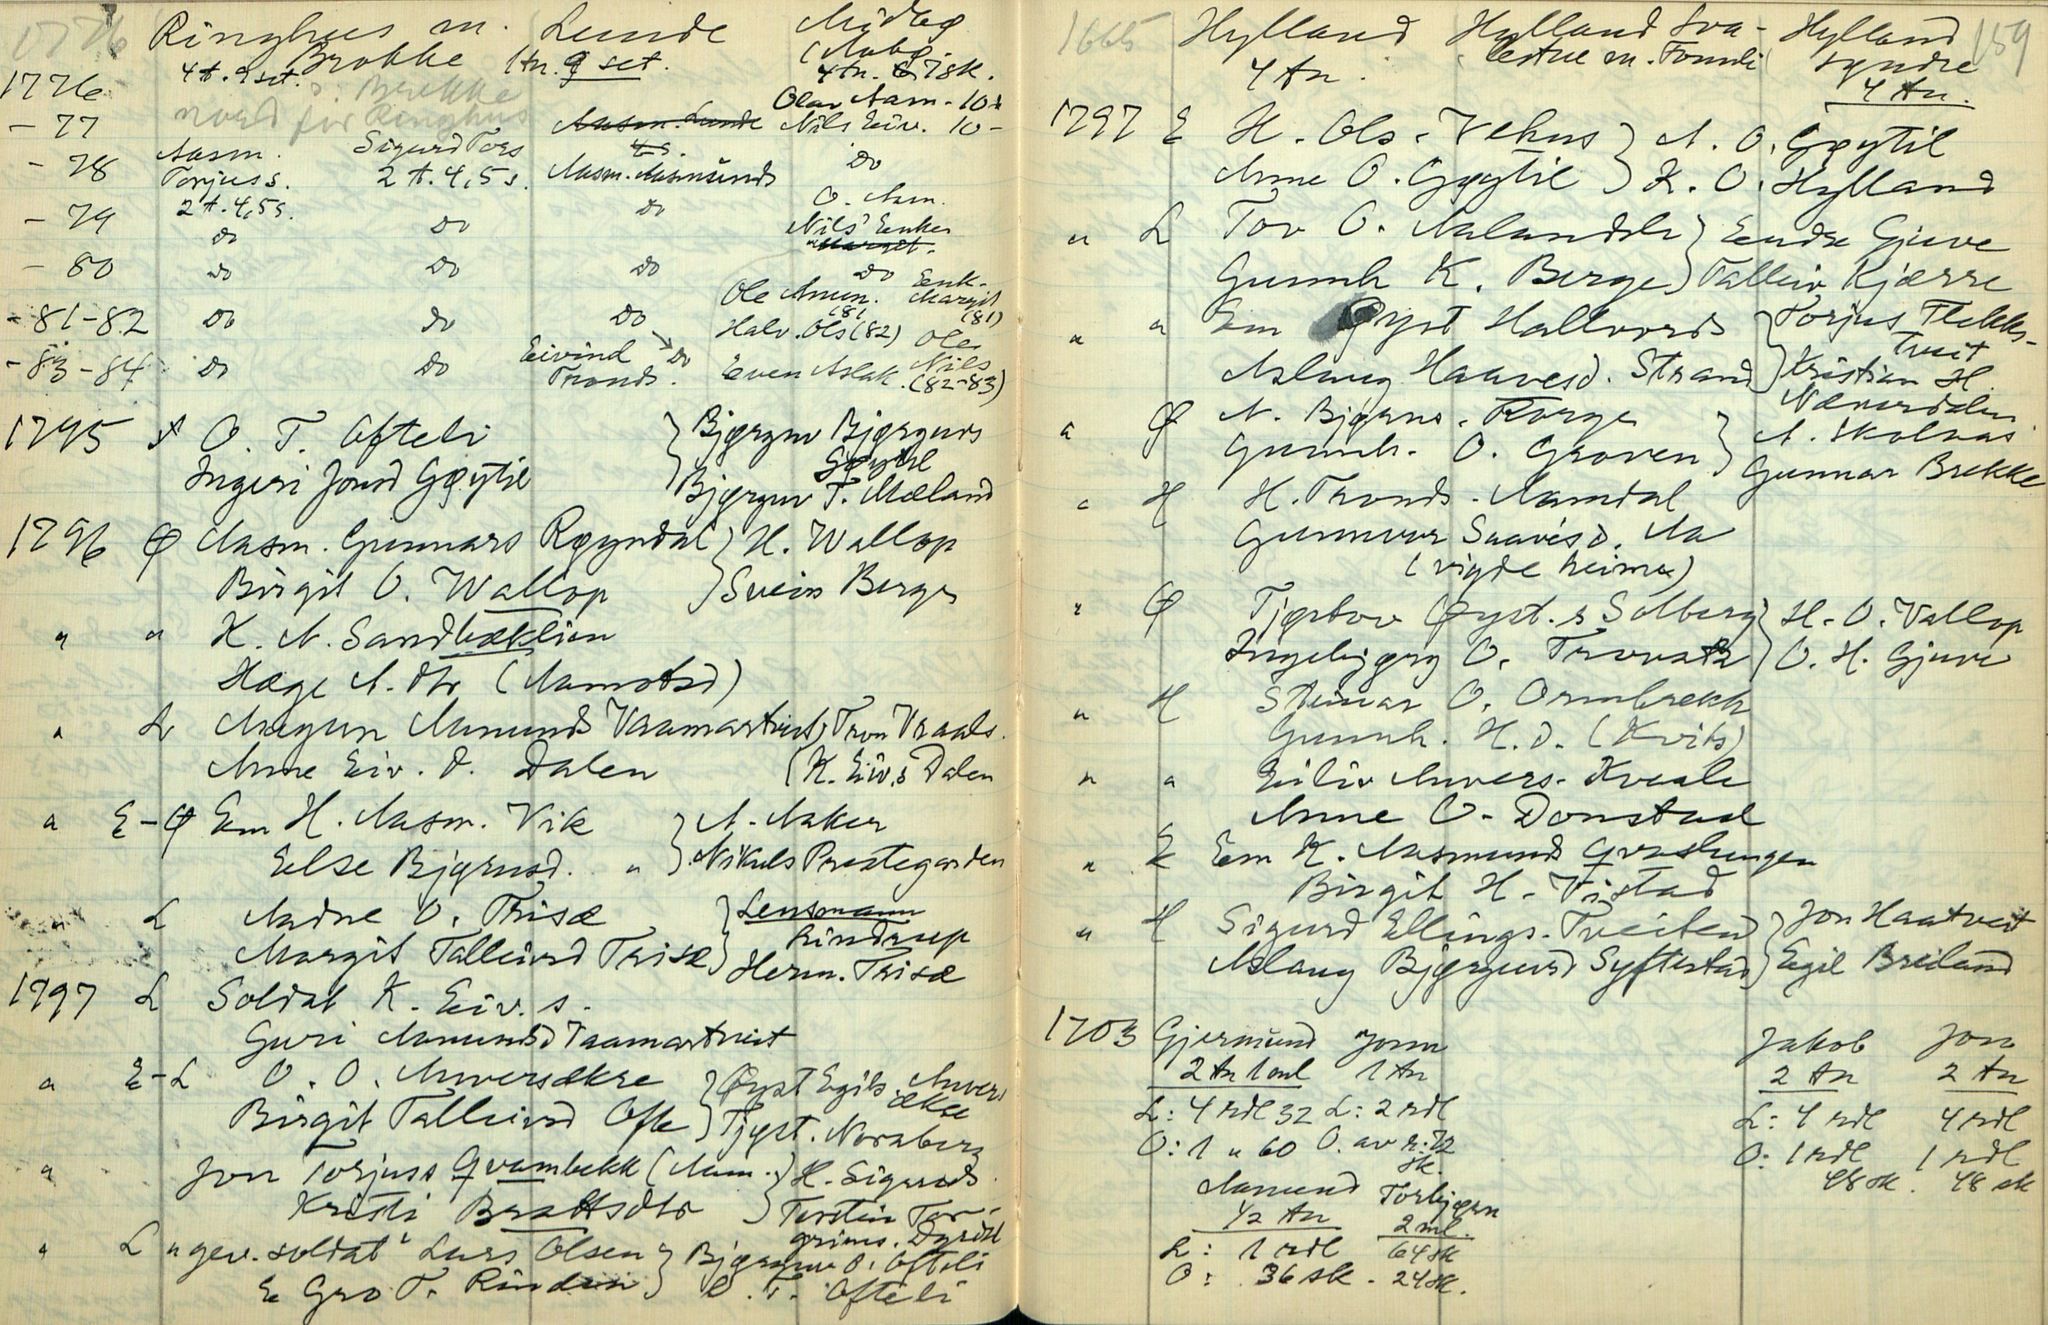 1776 Ringhus m. Lunde Midbø
Brokke 1tn. 9 set. (Aabø.
4t. 9 set. 4 tn. 6 78k.
1776 Brekke Olav Aam. 10
nord for Ringhus
- 77 Aasm. Lunde Nils Eiv. 10 -
- 78 Aasm. Sigurd Tors Do
Torjuss. 2 t. 4,5 s. Aasm. Aasmunds
2 t. 4,5 s. O. Aam.
- 79 Do Do Do Nils' Enke
Margit.
- 80 Do Do Do Do Enk.
Ole Amun. Margit
(81 (81)
- 81-82 Do Do Do Halv. Ols (82) Ole
- 83-84 Do Do Eivind Do Even Aslak. Nils
Tronds. (82-83)
1795 O. T. Ofteli } Bjørgun Bjørguns
Gøytil
Ingeri Jonsd Gøytil Bjørgun T. Mæland
1796 Ø Aasm. Gunnars Røyndal } H. Wallop
Birgit O. Wallop } Svein Berge
" " K. N. Sandbæklien
Hæge A. dtr (Aamotsd)
" L Aagun Aamunds Vaamartveit } Tron Vraals.
Anne Eiv. d. Dalen ( K. Eiv.s Dalen
" E-Ø Em H. Aasm. Vik } A. Aaker
Else Bjørnsd. " } Nikuls Prestegarden
" L Aadne O. Trisæ } Lensmann
Lindrup
Margit Talleivsd Trisæ } Herm. Trisæ
1797 L Soldat K. Eiv. s.
Guri Aamundsd Vaamartveit
" E-L O. O. Anversækre } Øyst Egils. Anvers
ækre
Birgit Talleivsd Ofte } Tjøst. Noraberg
" Jon Torjuss Qvambekk (Aam.) H. Sigurds.
Kristi Brattsdtr } Torstein Tor-
grims. Dyrdal
" L "gev. soldat" Lars Olsen } Bjørgun O. Ofteli
E Gro T. Rinden } O. T. Ofteli
1665 Hylland Hylland Sva- Hylland 159
4 tn. lestue m. Tomli syndre
4 tn.
1797 E H. Ols. Vehus } A. O. Gøytil
Anne O. Gøytil } K. O. Hylland
" L Tov O. Aalandsli } Endre Gjuve
Gunnh K. Berge } Talleiv Kjærre
" " Em Øyst Hallvords } Torjus Flekks-
tveit
Aslaug Haavesd. Strand } Kristian H.
Næverdalen
" Ø N. Bjørns. Korge } A. Skolnas
Gunnh. O. Groven } Gunnar Brekke
" H H. Tronds. Aamdal
Gunnvor Saavesd. Aa
(vigde heime)
" Ø Tjøstov Øyst. s Solberg } H. O. Vallop
Ingebjørg O. Trovatn } O. H. Gjuve
" H Steinar O. Ormbrekk
Gunnh. H. d. (Kvits)
" " Eiliv Anvers. Kveale
Anne O. Donstad
" E Em K. Aasmunds Graslungen
Birgit H. Vistad
" H Sigurd Ellings. Tveiten } Jon Haatveit
Aslaug Bjørgunsd Syftestad } Egil Breiland
1703 Gjermund Jonn Jakob Jon
2 tn 1 ml 1 tn 2 tn 2 tn
L: 4 rdl 32 L: 2 rdl L: 4 rdl 4 rdl
O: 1 " 60 O. av r: 72 O: 1 rdl 1 rdl
sk. 48 sk. 48 sk
Aamund Torbjørn
1/2 tn 2 ml.
L: 1 rdl 64 sk
O: 36 sk. 24 sk.